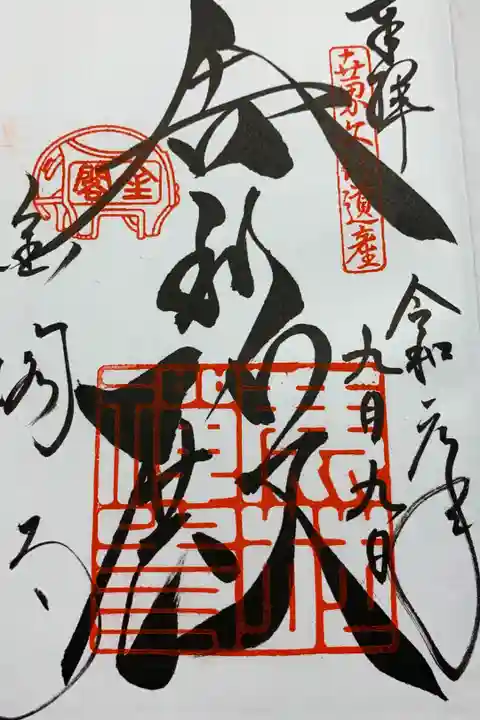 奉拝
世界文化遺産
令和元年
九月九日
舎利殿
金閣
金閣寺